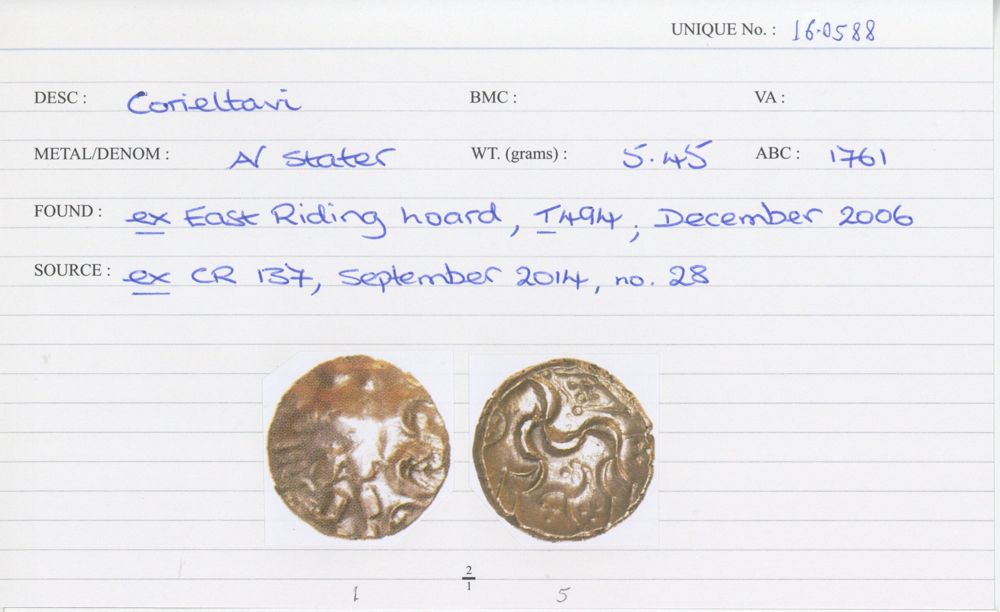 UNIQUE No. : 16.0588
DESC : Corieltavi BMC : VA :
METAL/DENOM : AV Stater WT. (grams) : 5.45 ABC : 1761
FOUND : ex East Riding hoard, T494, December 2006
SOURCE : ex CR 137, September 2014, no. 28
2
1
1 5